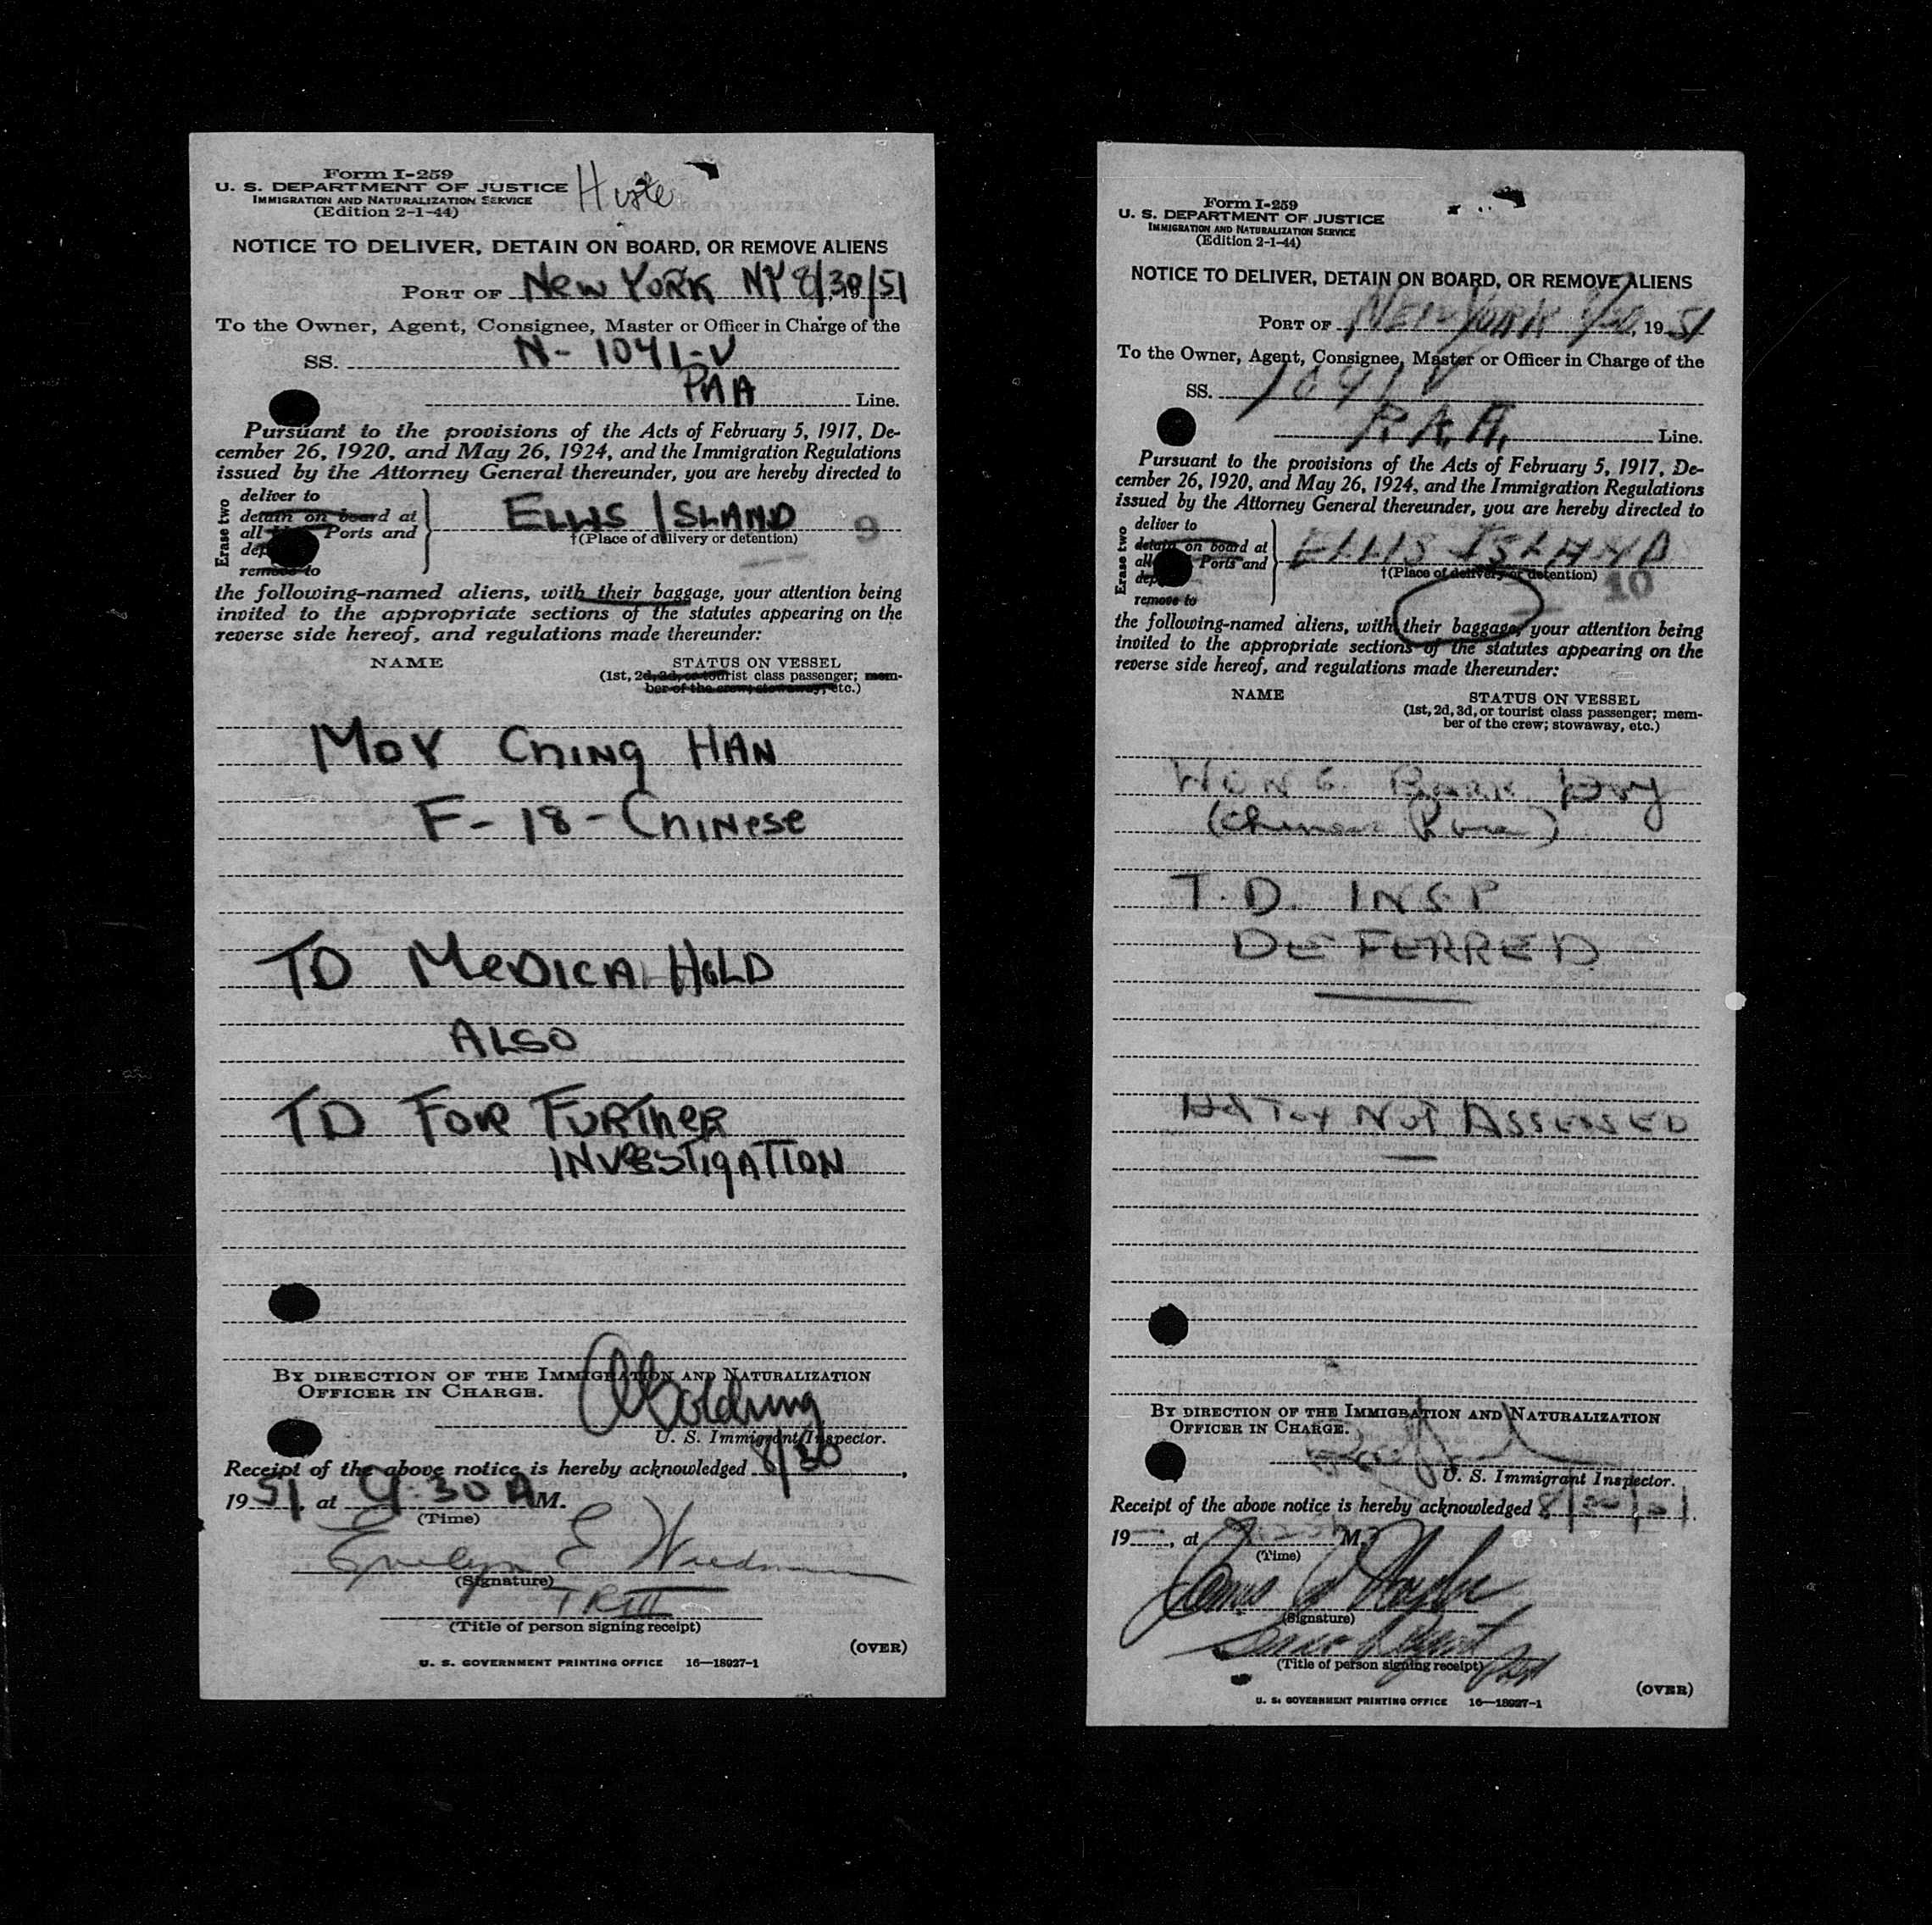 Form I-259
U. S. DEPARTMENT OF JUSTICE
IMMIGRATION AND NATURALIZATION SERVICE
(Edition 2-1-44)
NOTICE TO DELIVER, DETAIN ON BOARD, OR REMOVE ALIENS
PORT OF New YORK NY 8/30/51
To the Owner, Agent, Consignee, Master or Officer in Charge of the
SS. N-1041-V
PAA Line.
Pursuant to the provisions of the Acts of February 5, 1917, De-
cember 26, 1920, and May 26, 1924, and the Immigration Regulations
issued by the Attorney General thereunder, you are hereby directed to
Erase two
deliver to
detain on board at
all Ports and
remove to
ELLIS ISLAND 9
†(Place of delivery or detention)
the following-named aliens, with their baggage, your attention being
invited to the appropriate sections of the statutes appearing on the
reverse side hereof, and regulations made thereunder:
NAME STATUS ON VESSEL
(1st, 2d, 3d, or tourist class passenger; mem-
ber of the crew; stowaway, etc.)
MOY CHING HAN
F-18-CHINESE
TD MEDICAL HOLD
ALSO
TD FOR FURTHER
INVESTIGATION
BY DIRECTION OF THE IMMIGRATION AND NATURALIZATION
OFFICER IN CHARGE.
U. S. Immigrant Inspector.
Receipt of the above notice is hereby acknowledged 8/30,
1951, at 9:30 A M.
(Time)
Evelyn E
(Signature)
(Title of person signing receipt)
(OVER)
U. S. GOVERNMENT PRINTING OFFICE 16—18927-1
Form I-259
U. S. DEPARTMENT OF JUSTICE
IMMIGRATION AND NATURALIZATION SERVICE
(Edition 2-1-44)
NOTICE TO DELIVER, DETAIN ON BOARD, OR REMOVE ALIENS
PORT OF NEW YORK, 1951
To the Owner, Agent, Consignee, Master or Officer in Charge of the
SS. 1041 V
P.A.A. Line.
Pursuant to the provisions of the Acts of February 5, 1917, De-
cember 26, 1920, and May 26, 1924, and the Immigration Regulations
issued by the Attorney General thereunder, you are hereby directed to
Erase two
deliver to
detain on board at
all Ports and
remove to
ELLIS ISLAND
†(Place of delivery or detention) 10
the following-named aliens, with their baggage, your attention being
invited to the appropriate sections of the statutes appearing on the
reverse side hereof, and regulations made thereunder:
NAME STATUS ON VESSEL
(1st, 2d, 3d, or tourist class passenger; mem-
ber of the crew; stowaway, etc.)
WONG
T.D. INSP
DEFERRED
Hd Tax NOT ASSESSED
BY DIRECTION OF THE IMMIGRATION AND NATURALIZATION
OFFICER IN CHARGE.
U. S. Immigrant Inspector.
Receipt of the above notice is hereby acknowledged
19, at M.
(Time)
James
(Signature)
(Title of person signing receipt)
(OVER)
U. S. GOVERNMENT PRINTING OFFICE 16—18927-1